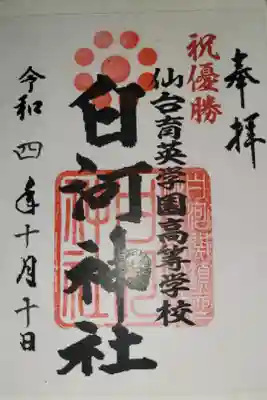 奉拝
祝優勝
仙台育英学園高等学校
白河神社
令和四年十月十日